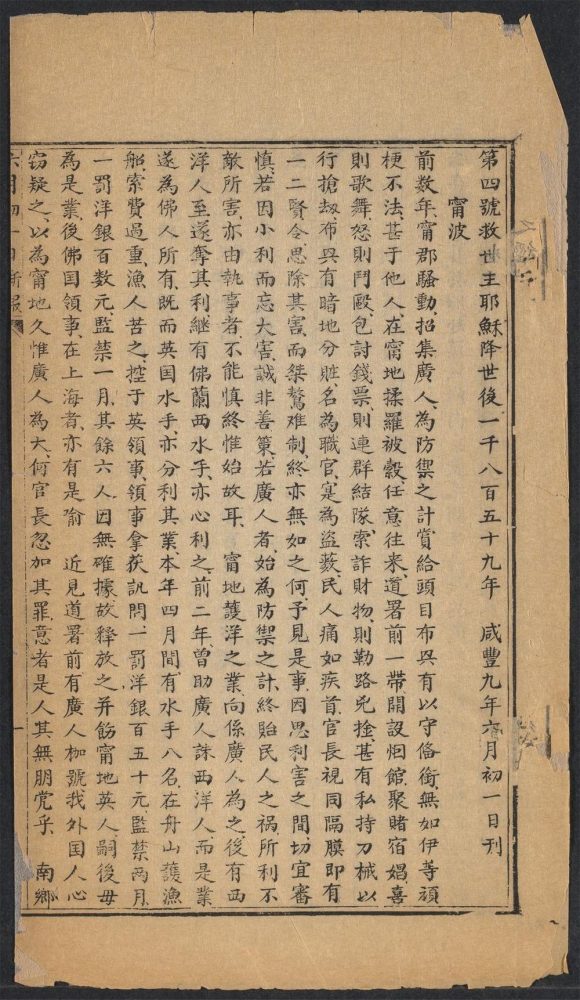 第四號救世主耶穌降世後一千八百五十九年 咸豐九年六月初一日刊
甯波
前数年、甯郡騷動、招集廣人、為防禦之計、賞給頭目布興有以守俻銜、無如伊等頑
梗不法、甚于他人、在甯地揉羅被縠、任意往来、道署前一帶開設烟館、聚賭宿娼、喜
則歌舞、怒則鬥毆、包討錢票、則連群結隊、索詐財物、則勒路兇搶、甚有私持刀械、以
行搶刼、布興有暗地分賍、名為職官、寔為盜藪、民人痛如疾首、官長視同隔膜、即有
一二賢令、思除其害、而桀驁难制、終亦無如之何、予見是事、因思利害之間、切宜審
慎、若因小利而忘大害、誠非善策、若廣人者、始為防禦之計、終貽民人之禍、所利不
敵所害、亦由執事者、不能慎終惟始故耳、 甯地護洋之業、向係廣人為之、後有西
洋人至、遂奪其利、継有佛蘭西水手、亦心利之、前二年、曾助廣人誅西洋人、而是業
遂為佛人所有、既而英国水手、亦分利其業、本年四月間、有水手八名、在舟山護漁
船、索費過重、漁人苦之、控于英領事、領事拿获訊問、一罰洋銀百五十元、監禁两月、
一罰洋銀百数元、監禁一月、其餘六人、因無確據、故釋放之、并飭甯地英人、嗣後毋
為是業、後佛国領事、在上海者、亦有是喻 近見道署前有廣人枷號、我外国人心
窃疑之、以為甯地久惟廣人為大、何官長忽加其罪、意者是人其無朋党乎、 南鄉
六月初一日新报 一